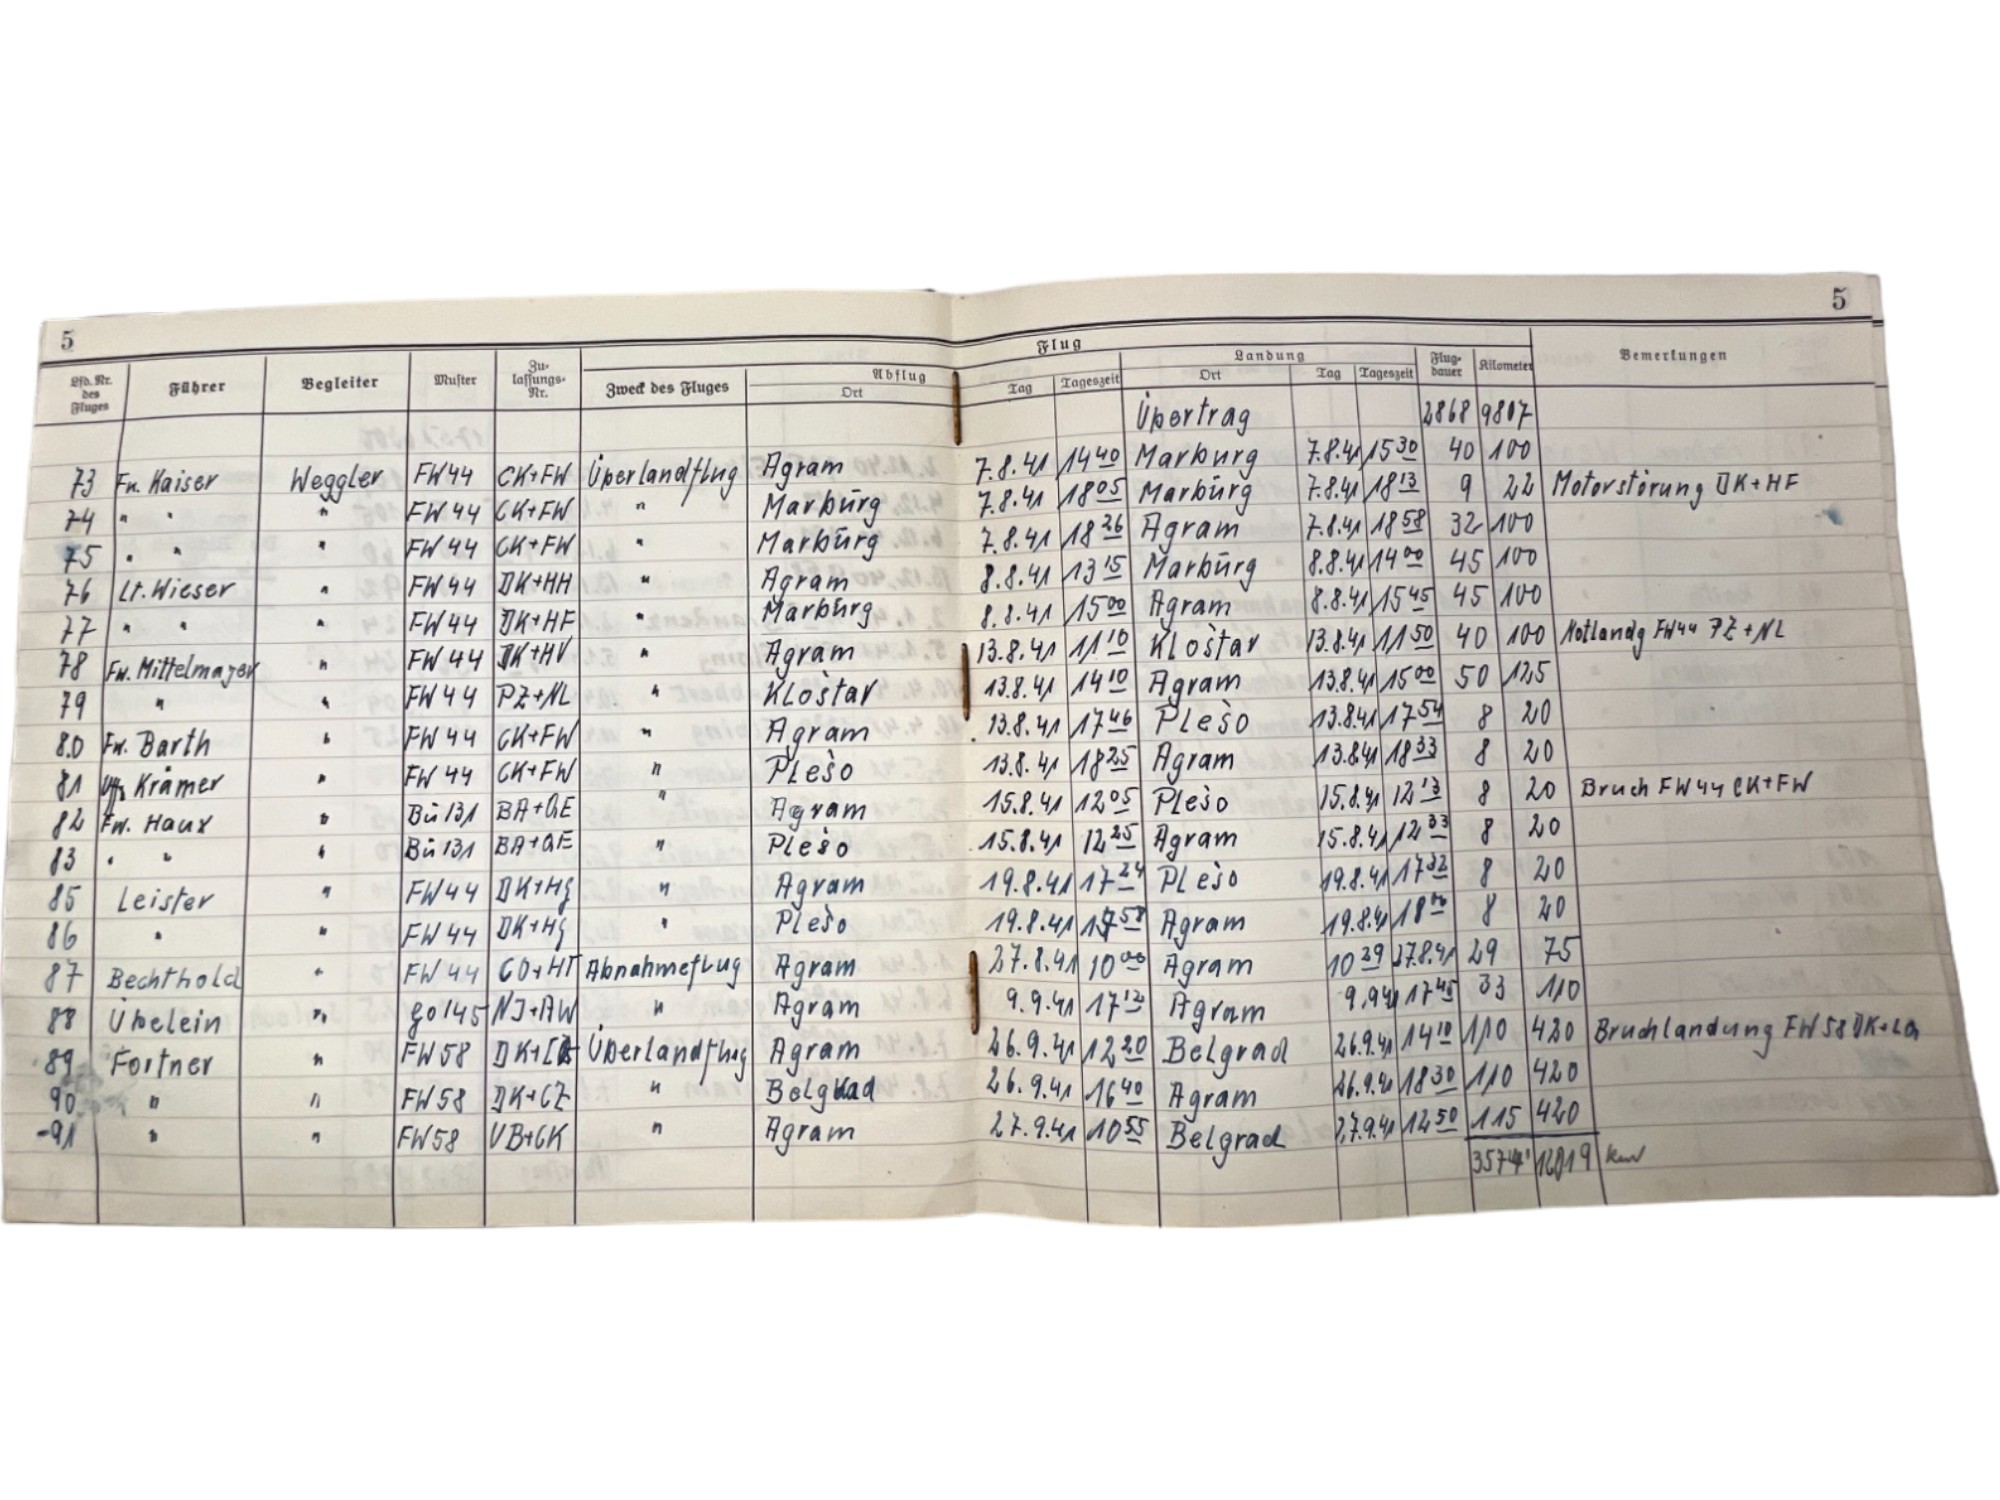 5 5
Flug
Lfd. Nr. des Fluges Führer Begleiter Muster Zulassungs-Nr. Zweck des Fluges Abflug Ort Tag Tageszeit Landung Ort Tag Tageszeit Flugdauer Kilometer Bemerkungen
Übertrag 2868 9807
73 Fw. Kaiser Weggler FW 44 CK+FW Überlandflug Agram 7.8.41 14 40 Marburg 7.8.41 15 30 40 100
74 " " " FW 44 CK+FW " Marbürg 7.8.41 18 05 Marbürg 7.8.41 18 13 9 22 Motorstörung DK+HF
75 " " " FW 44 CK+FW " Marbürg 7.8.41 18 26 Agram 7.8.41 18 58 32 100
76 Lt. Wieser " FW 44 DK+HH " Agram 8.8.41 13 15 Marbürg 8.8.41 14 00 45 100
77 " " " FW 44 DK+HF " Marbürg 8.8.41 15 00 Agram 8.8.41 15 45 45 100
78 Fw. Mittelmayer " FW 44 DK+HV " Agram 13.8.41 11 10 Kloštar 13.8.41 11 50 40 100 Notlandg FW 44 PZ+NL
79 " " FW 44 PZ+NL " Kloštar 13.8.41 14 10 Agram 13.8.41 15 00 50 125
80 Fw. Barth " FW 44 CK+FW " Agram 13.8.41 17 46 Plešo 13.8.41 17 54 8 20
81 Uffz Krämer " FW 44 CK+FW " Plešo 13.8.41 18 25 Agram 13.8.41 18 33 8 20
82 Fw. Haux " Bü 131 BA+QE " Agram 15.8.41 12 05 Plešo 15.8.41 12 13 8 20 Bruch FW 44 CK+FW
83 " " " Bü 131 BA+QE " Plešo 15.8.41 12 25 Agram 15.8.41 12 33 8 20
85 Leister " FW 44 DK+Hg " Agram 19.8.41 17 24 Plešo 19.8.41 17 32 8 20
86 " " FW 44 DK+Hg " Plešo 19.8.41 17 58 Agram 19.8.41 18 8 20
87 Bechthold " FW 44 Abnahmeflug Agram 27.8.41 10 00 Agram 10 29 27.8.41 29 75
88 Übelein " go 145 NJ+AW " Agram 9.9.41 17 12 Agram 9.9.41 17 45 33 110
89 Fortner " FW 58 Überlandflug Agram 26.9.41 12 20 Belgrad 26.9.41 14 10 110 420 Bruchlandung FW 58
90 " " FW 58 DK+CZ " Belgrad 26.9.41 16 40 Agram 26.9.41 18 30 110 420
91 " " FW 58 VB+CK " Agram 27.9.41 10 55 Belgrad 27.9.41 12 50 115 420
3574' 12019 km